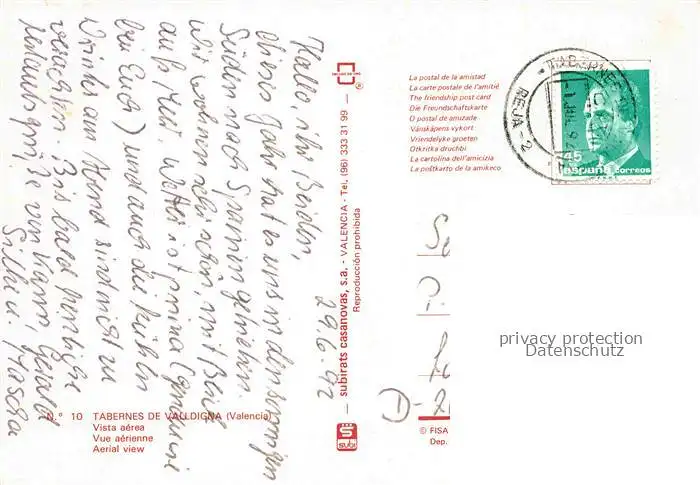 29.6.92
Hallo, ihr Beiden,
dieses Jahr hat es uns in den sonnigen
Süden nach Spanien getrieben.
Wir wohnen sehr schön, mit Blick
aufs Meer. Wetter ist prima (genau wie
bei Euch) und auch die kühlen
Drinks am Abend sind nicht zu
verachten. Bis bald herzliche
Urlaubsgrüße von Karin, Gerald
Silke u. Mascha
N.º 10 TABERNES DE VALLDIGNA (Valencia)
Vista aérea
Vue aérienne
Aerial view
subirats casanovas, s.a. - VALENCIA - Tel. (96) 333 31 99 -
Reproducción prohibida
subi
La postal de la amistad
La carte postale de l'amitié
The friendship post card
Die Freundschaftskarte
O postal de amizade
Vänskápens vykort
Vriendelyke groeten
Otkritka druchbi
La cartolina dell'amicizia
La poŝtkarto de la amikeco
45
españa correos
D-2
© FISA
Dep.
privacy protection
Datenschutz